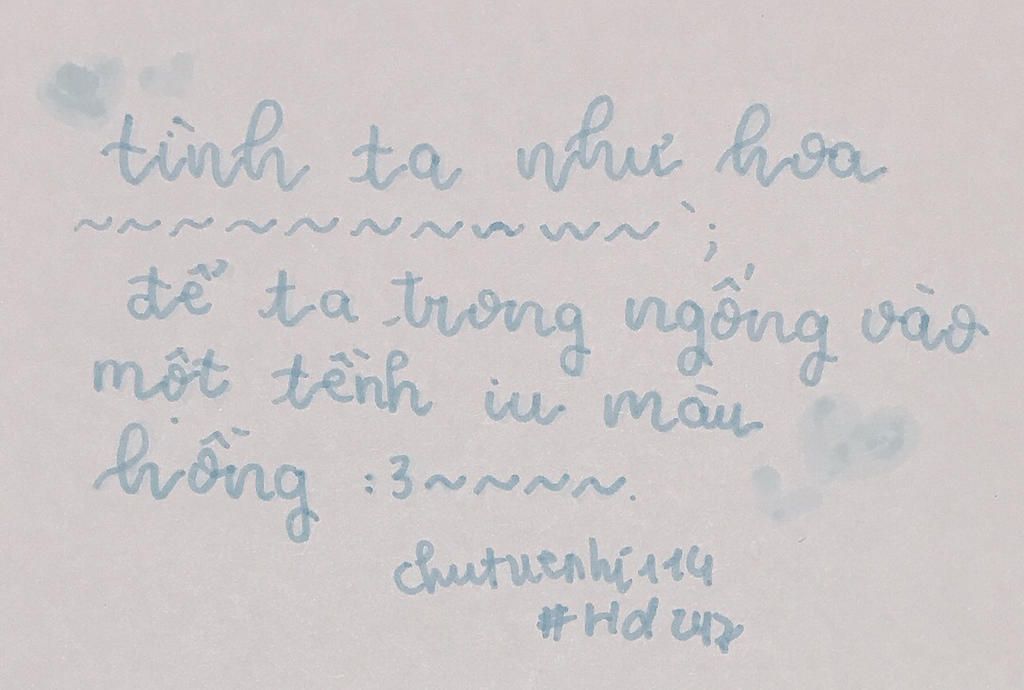 tình ta như hoa
~~~~~~~~~~~~~ ;
để ta trong ngống vào
một tềnh iu màu
hồng :3~~~~~.
chutuenhị114
#Hd247